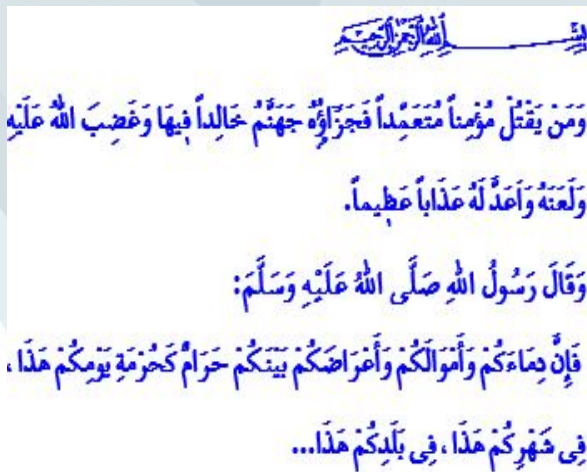 بِسْــــــــــمِ اللهِ الرَّحْمٰنِ الرَّحِيمِ
وَمَنْ يَقْتُلْ مُؤْمِناً مُتَعَمِّداً فَجَزَٓاؤُ۬هُ جَهَنَّمُ خَالِداً فِيهَا وَغَضِبَ اللهُ عَلَيْهِ
وَلَعَنَهُ وَاَعَدَّ لَهُ عَذَاباً عَظِيماً.
وَقَالَ رَسُولُ اللهِ صَلَّى اللهُ عَلَيْهِ وَسَلَّمَ:
فَإِنَّ دِمَاءَكُمْ وَأَمْوَالَكُمْ وَأَعْرَاضَكُمْ بَيْنَكُمْ حَرَامٌ كَحُرْمَةِ يَوْمِكُمْ هَذَا ،
فِى شَهْرِكُمْ هَذَا ، فِى بَلَدِكُمْ هَذَا...